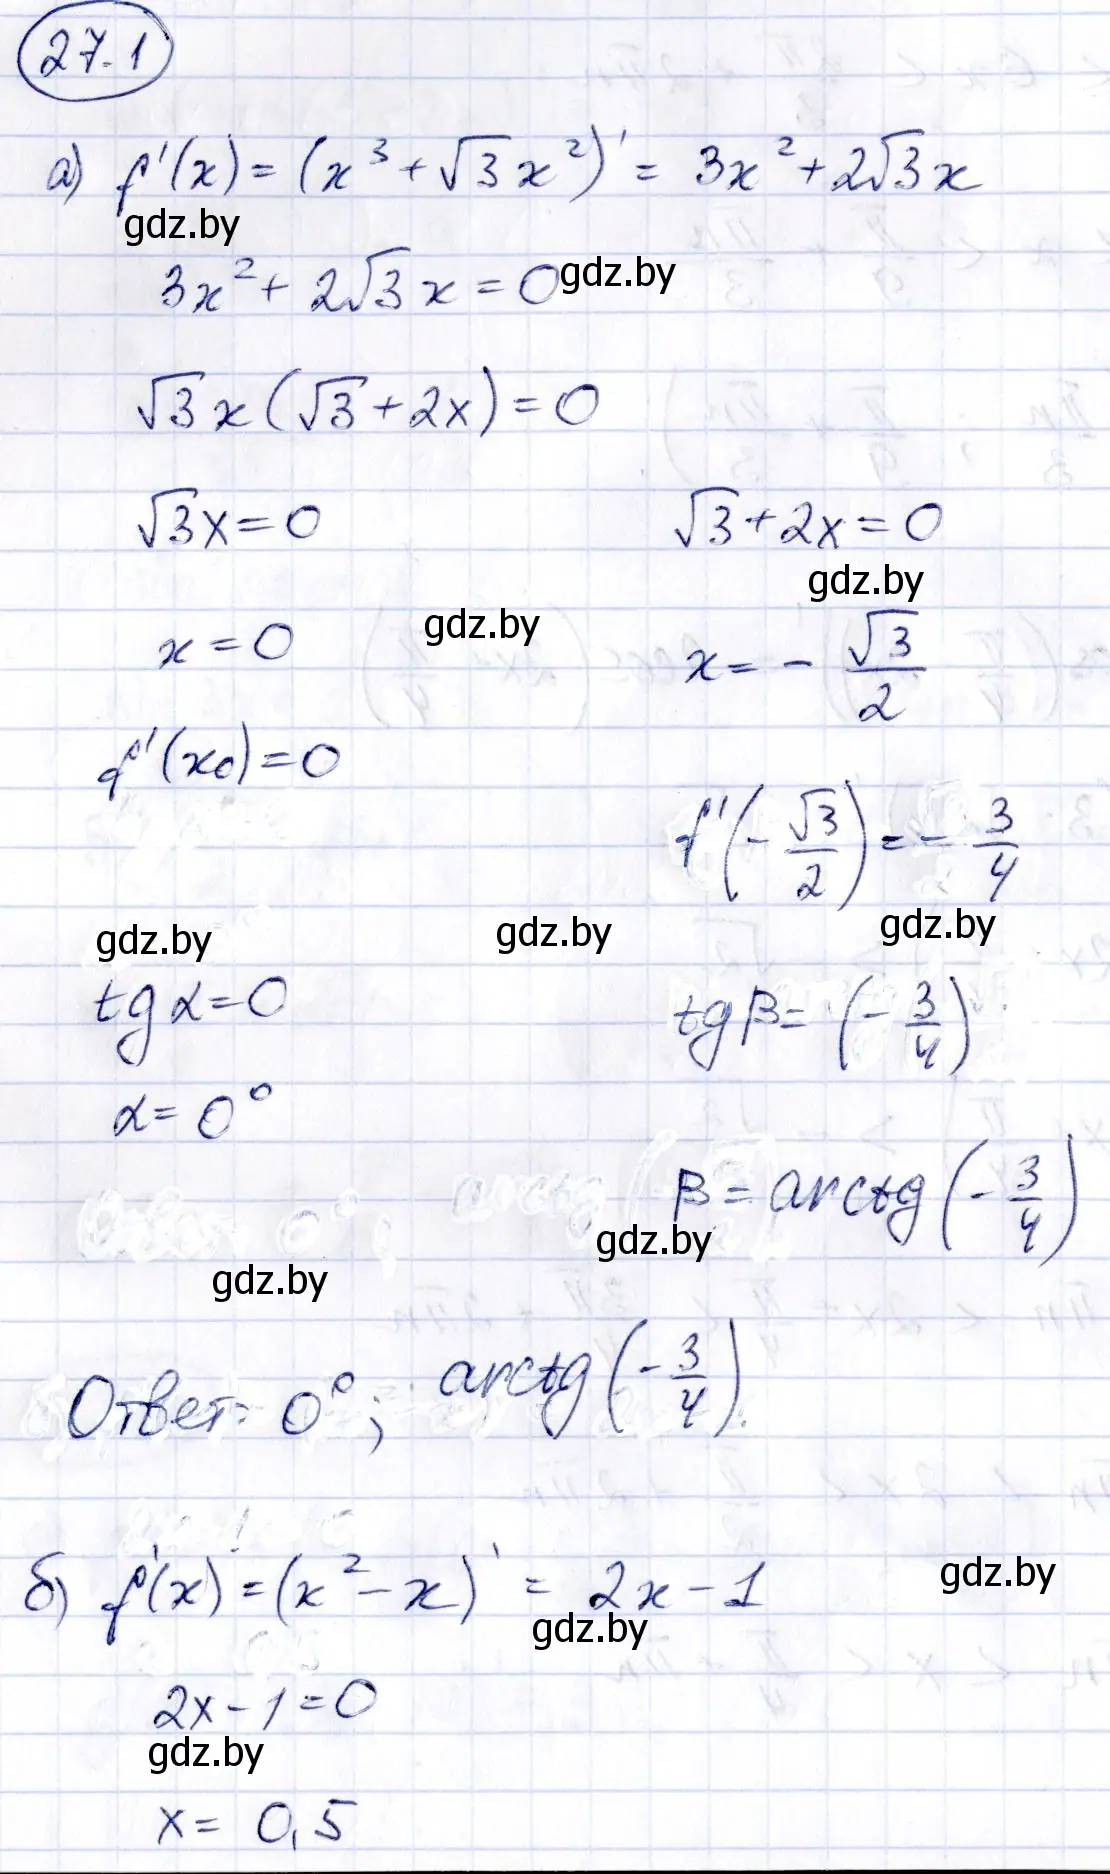 27.1
а) f'(x) = (x³ + √3x²)' = 3x² + 2√3x
gdz.by
3x² + 2√3x = 0 gdz.by
√3x(√3 + 2x) = 0
√3x = 0 √3 + 2x = 0
gdz.by
gdz.by
x = 0 x = - √3/2
f'(x₀) = 0
f'(-√3/2) = - 3/4
gdz.by gdz.by gdz.by
tg α = 0 tg β = (-3/4)
α = 0°
β = arctg(-3/4)
gdz.by
gdz.by
Ответ: 0°; arctg(-3/4).
б) f'(x) = (x² - x)' = 2x - 1
gdz.by
gdz.by
2x - 1 = 0
gdz.by
x = 0,5